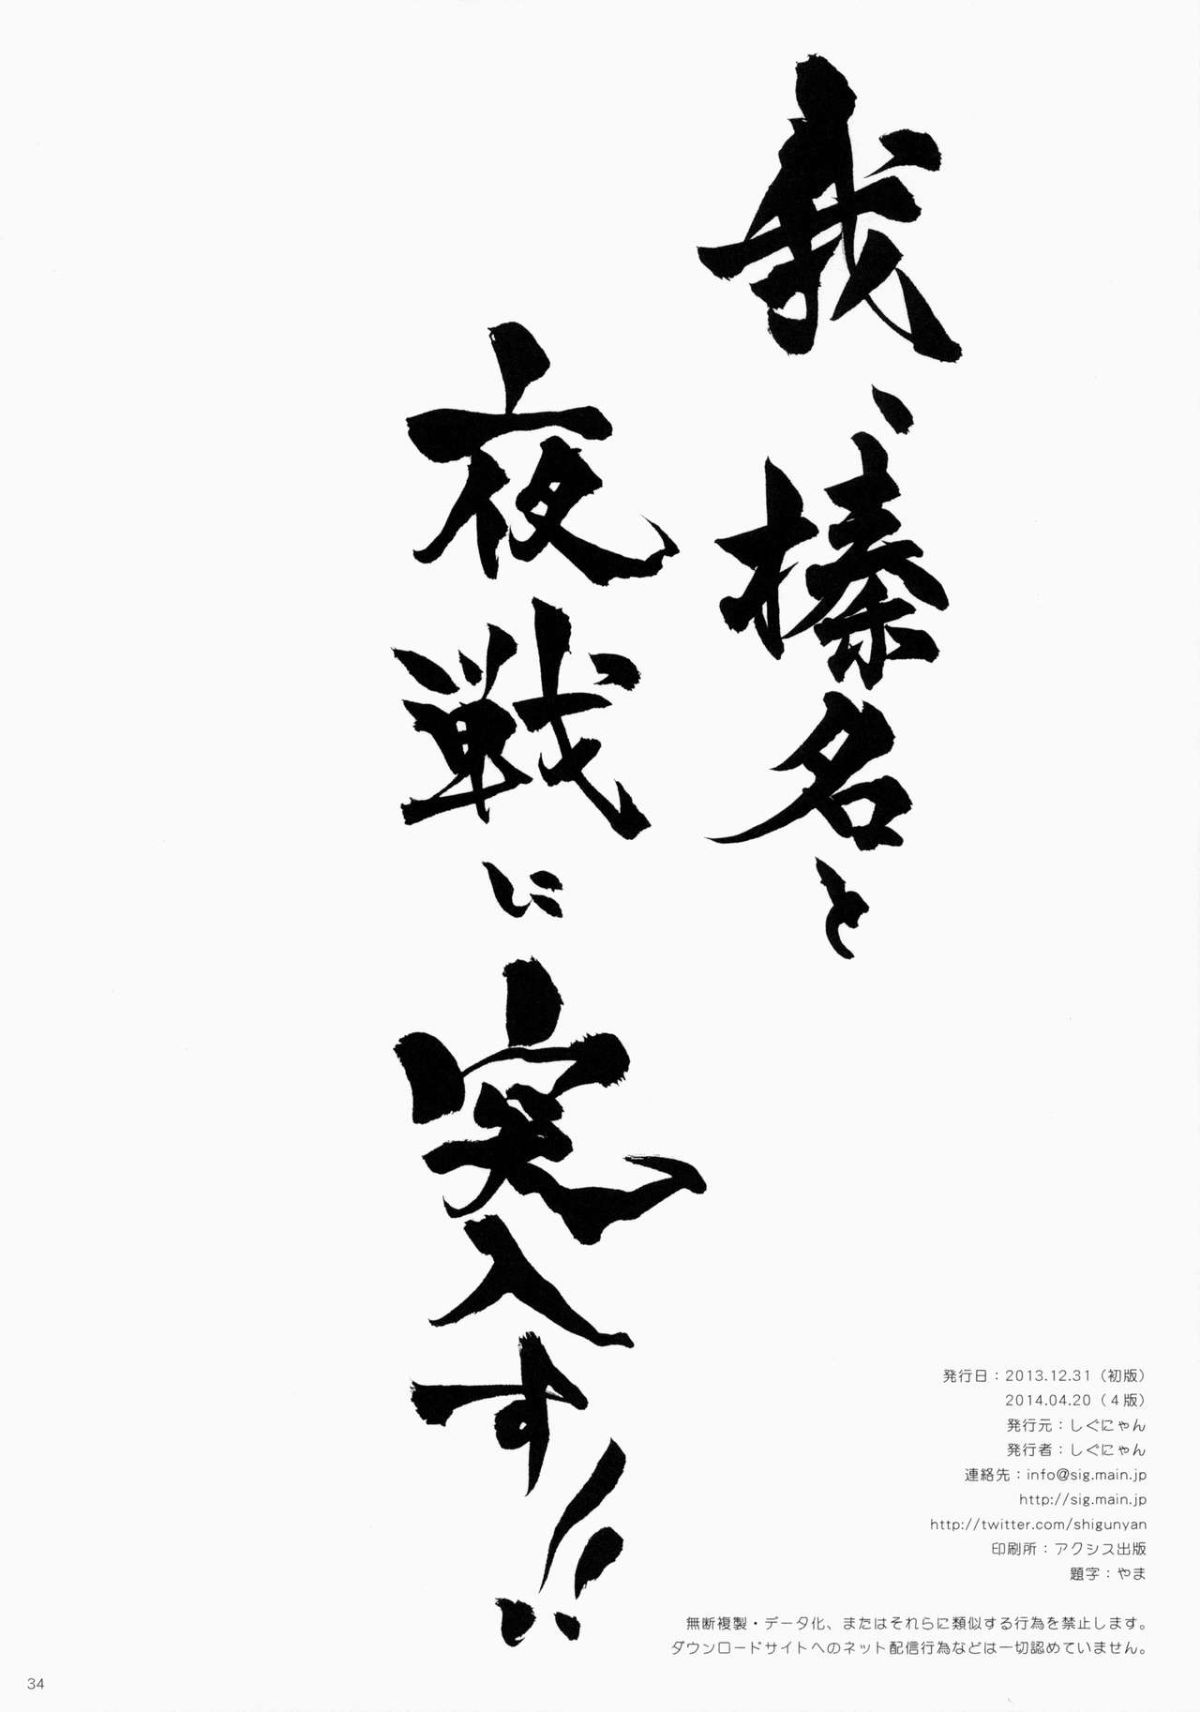 我、榛名と
夜戦に突入す!!
発行日：2013.12.31（初版）
2014.04.20（４版）
発行元：しぐにゃん
発行者：しぐにゃん
連絡先：info@sig.main.jp
http://sig.main.jp
http://twitter.com/shigunyan
印刷所：アクシス出版
題字：やま
無断複製・データ化、またはそれらに類似する行為を禁止します。
ダウンロードサイトへのネット配信行為などは一切認めていません。
34